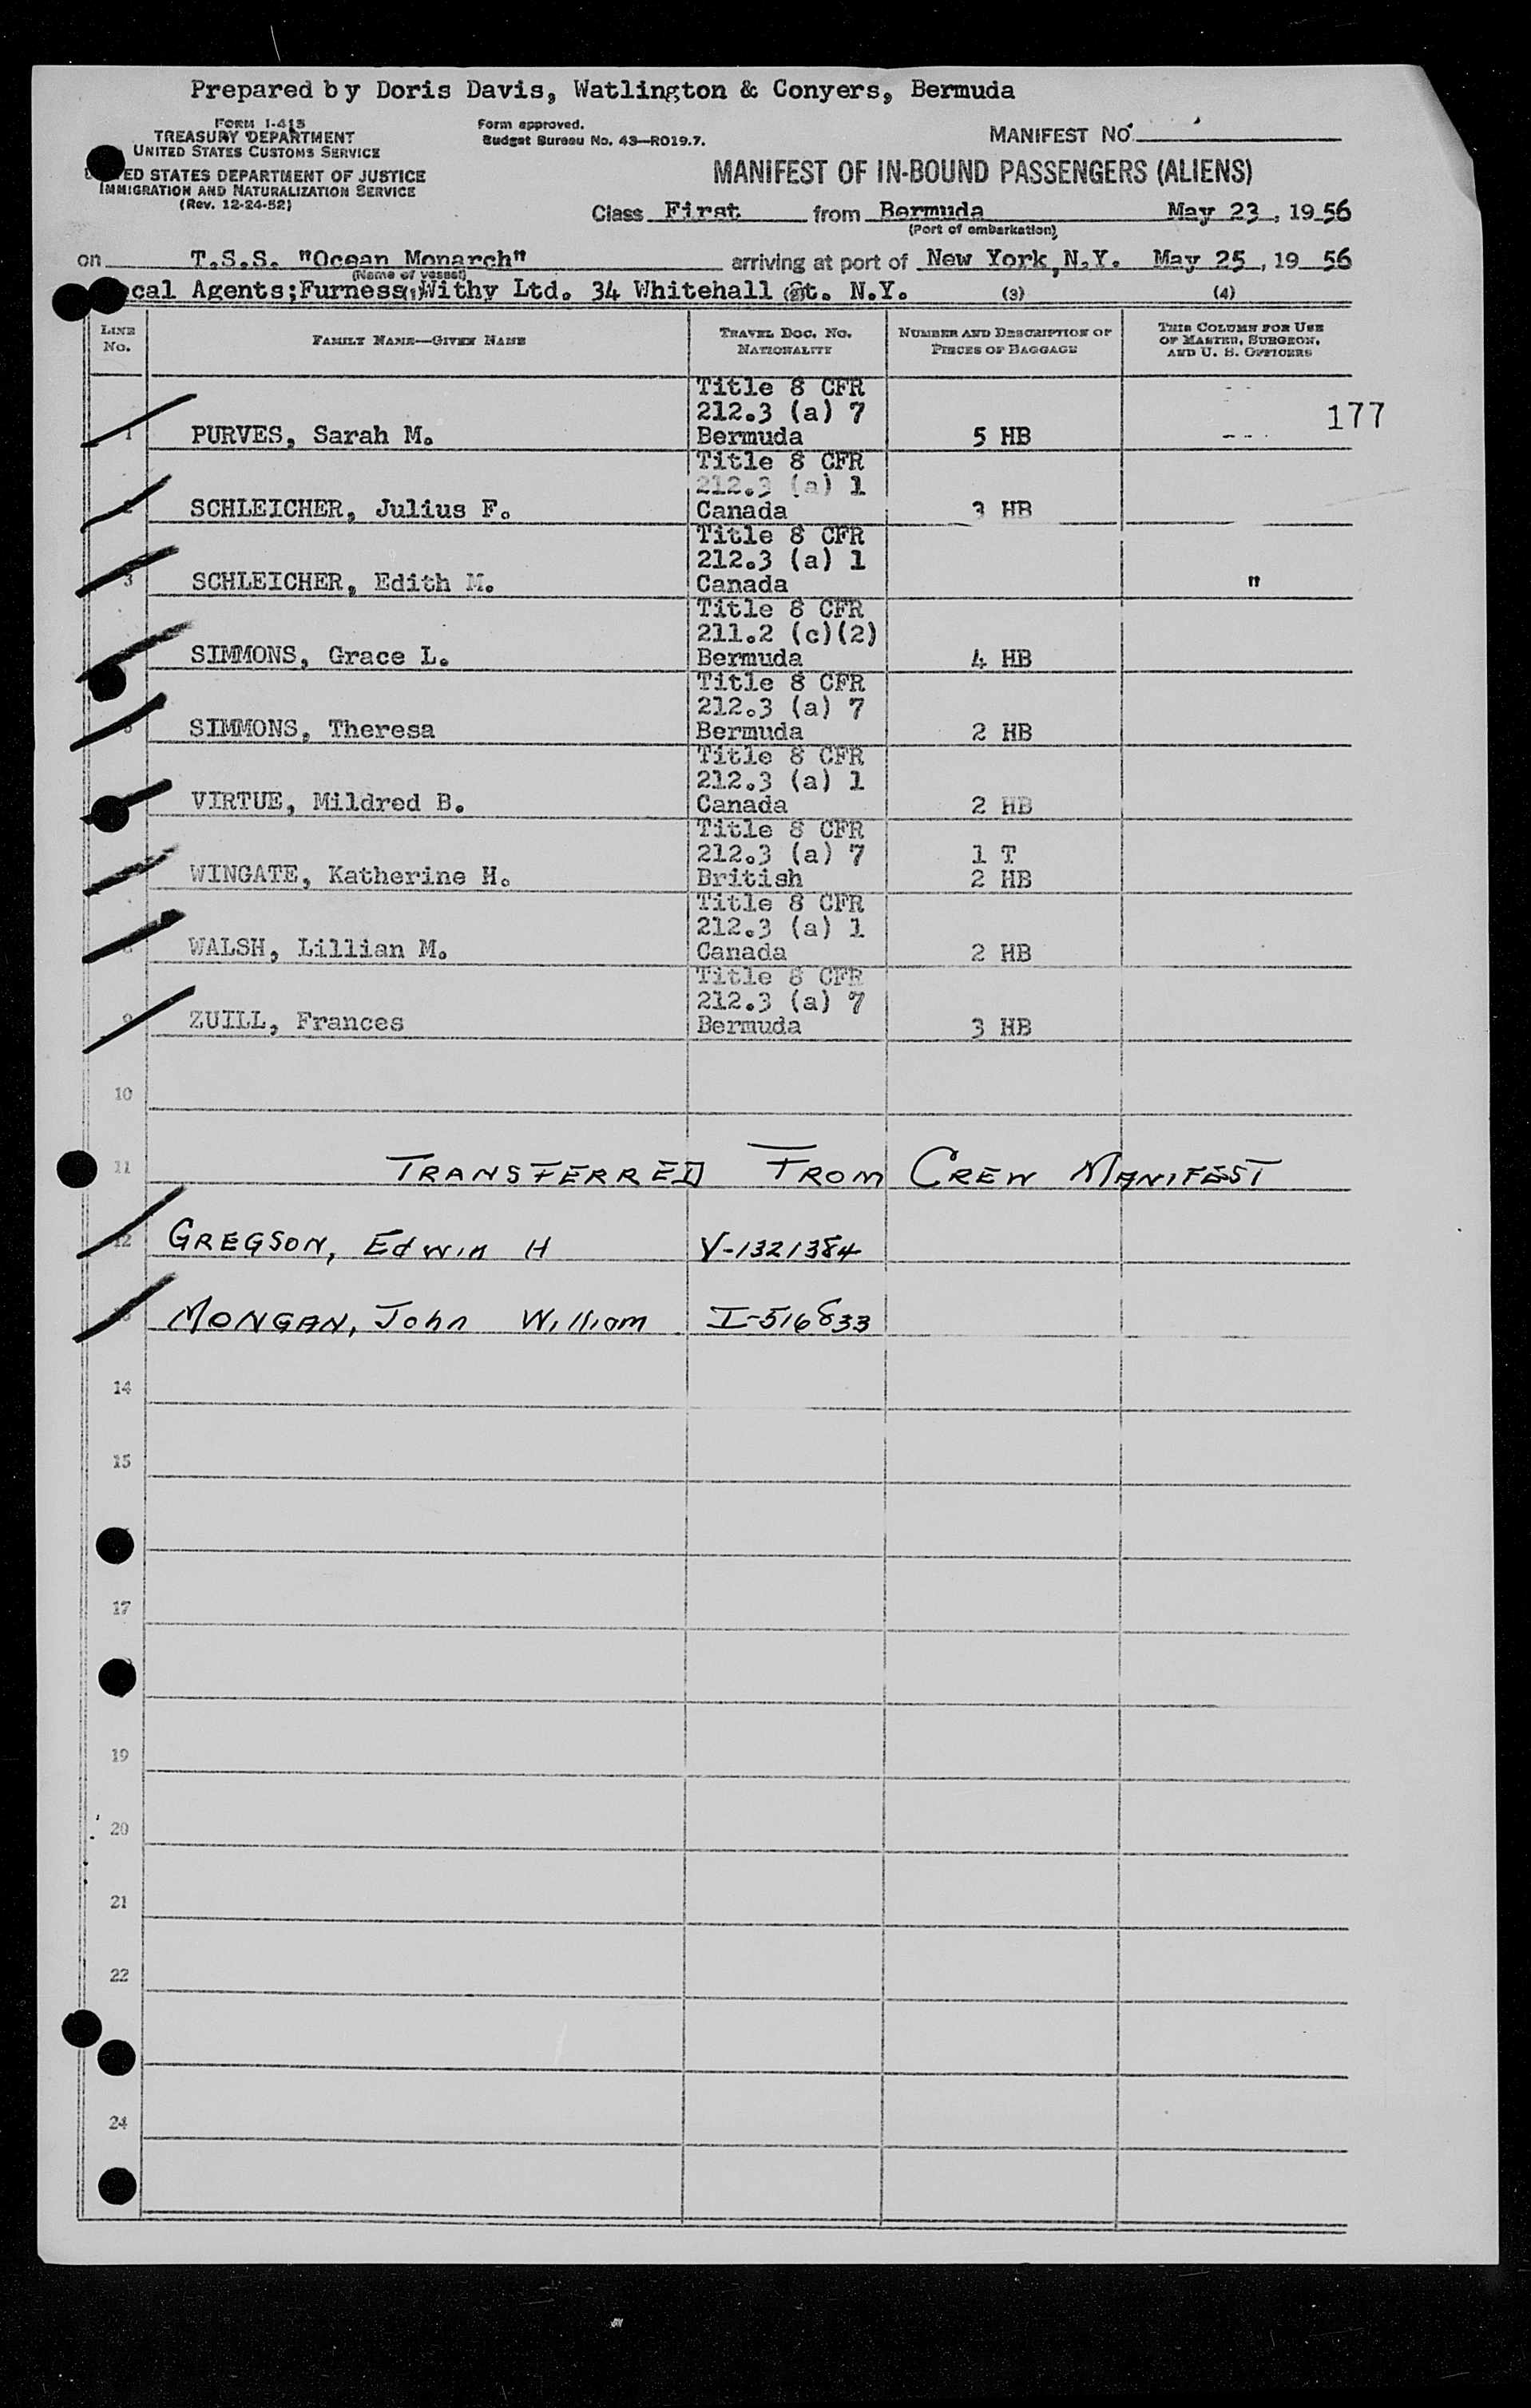 Prepared by Doris Davis, Watlington & Conyers, Bermuda
FORM I-415
TREASURY DEPARTMENT
UNITED STATES CUSTOMS SERVICE
ED STATES DEPARTMENT OF JUSTICE
IMMIGRATION AND NATURALIZATION SERVICE
(Rev. 12-24-52)
Form approved.
Budget Bureau No. 43—RO19.7.
MANIFEST NO.
MANIFEST OF IN-BOUND PASSENGERS (ALIENS)
Class First from Bermuda May 23, 1956
(Port of embarkation)
on T.S.S. "Ocean Monarch" arriving at port of New York, N.Y. May 25, 19 56
(Name of vessel)
ocal Agents; Furness Withy Ltd. 34 Whitehall St. N.Y.
(1) (2) (3) (4)
LINE No.
FAMILY NAME—GIVEN NAME
TRAVEL DOC. NO. NATIONALITY
NUMBER AND DESCRIPTION OF PIECES OF BAGGAGE
THIS COLUMN FOR USE OF MASTER, SURGEON, AND U. S. OFFICERS
177
Title 8 CFR
212.3 (a) 7
1 PURVES, Sarah M. Bermuda 5 HB
Title 8 CFR
212.3 (a) 1
2 SCHLEICHER, Julius F. Canada 3 HB
Title 8 CFR
212.3 (a) 1
3 SCHLEICHER, Edith M. Canada "
Title 8 CFR
211.2 (c)(2)
SIMMONS, Grace L. Bermuda 4 HB
Title 8 CFR
212.3 (a) 7
5 SIMMONS, Theresa Bermuda 2 HB
Title 8 CFR
212.3 (a) 1
VIRTUE, Mildred B. Canada 2 HB
Title 8 CFR
212.3 (a) 7 1 T
WINGATE, Katherine H. British 2 HB
Title 8 CFR
212.3 (a) 1
8 WALSH, Lillian M. Canada 2 HB
Title 8 CFR
212.3 (a) 7
9 ZUILL, Frances Bermuda 3 HB
10
11 TRANSFERRED FROM CREW MANIFEST
12 GREGSON, Edwin H V-1321384
13 MONGAN, John William I-516833
14
15
17
19
20
21
22
24